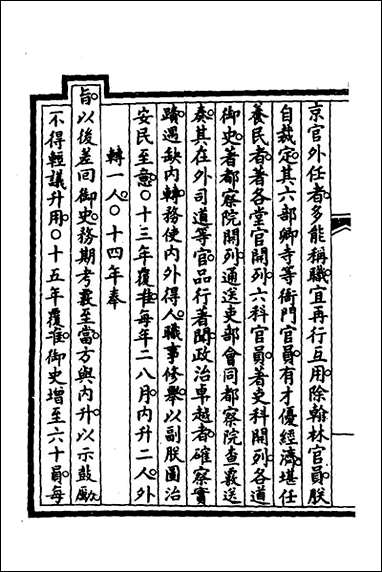 京官外任者多能稱職宜再行互用除翰林官員朕
自裁定其六部卿寺等衙門官員有才優經濟堪任
養民者著各堂官開列六科官員著吏科開列各道
御史著都察院開列通送吏部會同都察院查覈送
奏其在外司道等官品行著聞政治卓越者確察實
蹟遇缺內轉務使內外得人職事修舉以副朕圖治
安民至意○十三年覆准每年二八月內升二人外
轉一人○十四年奉
旨以後差回御史務期考覈至當方與內升以示鼓勵
不得輕議升用○十五年覆准御史增至六十員每